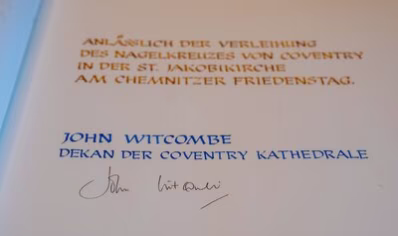 ANLÄSSLICH DER VERLEIHUNG
DES NAGELKREUZES VON COVENTRY
IN DER ST. JAKOBIKIRCHE
AM CHEMNITZER FRIEDENSTAG.
JOHN WITCOMBE
DEKAN DER COVENTRY KATHEDRALE
John Witcombe